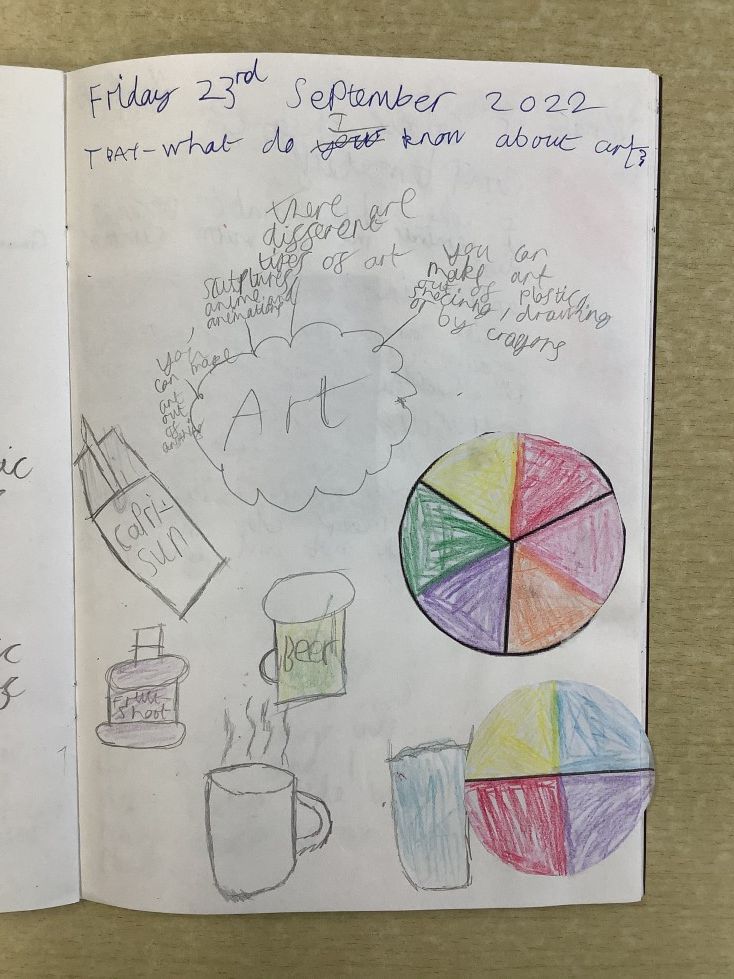 Friday 23rd September 2022
I
TBAT-what do you know about art?
there are
different
tipes of art
sculptures,
anime, and
animations
you can
make art
out of plastic,
, drawing
or by crayons
you
can make
art
out
of
Art
Capri-
Sun
Beer
Fruit
Shoot